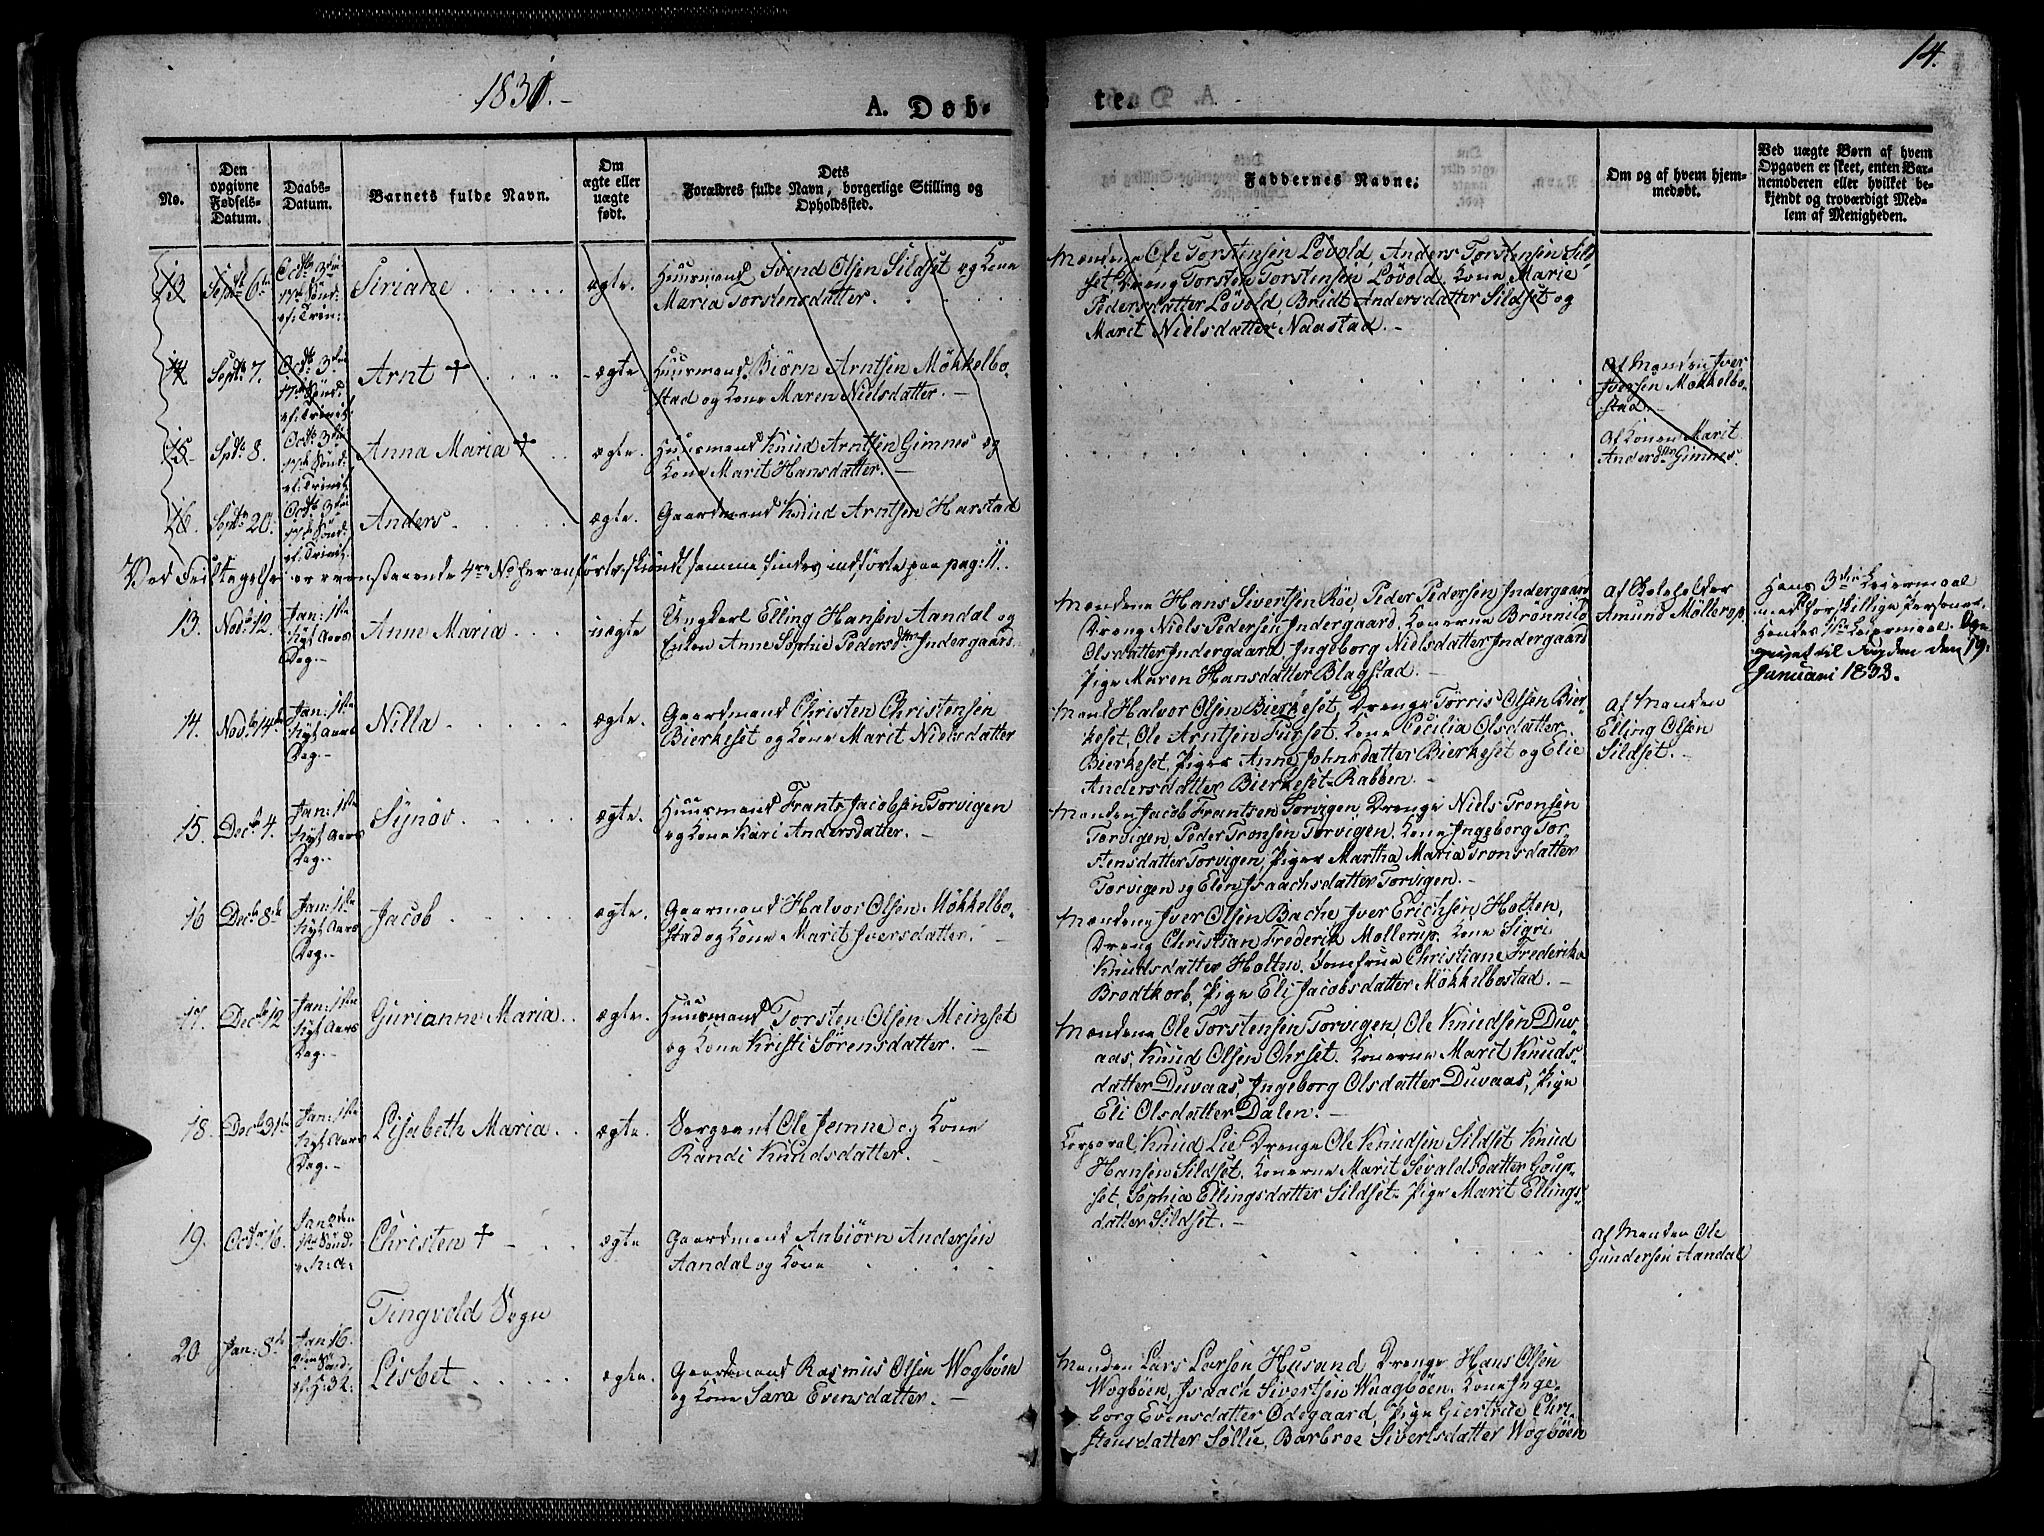 14.
1831.-
A. Døb-
te.
No.
Den
opgivne
Fødsels-
Datum.
Daabs-
Datum.
Barnets fulde Navn.
Om
ægte eller
uægte
født.
Dets
Forældres fulde Navn, borgerlige Stilling og
Opholdssted.
Faddernes Navne.
Om og af hvem hjem-
medøbt.
Ved uægte Børn af hvem
Opgaven er skeet, enten Bar-
nemoderen eller hvilket be-
kjendt og troværdigt Med-
lem af Menigheden.
13
Septbr 6te
Octbr 3die
17de Sönd:
ef: Trin:
Siriane
ægte.
Huusmand Svend Olsen Sildset og Kone
Maria Torstensdatter.
Mændene Ole Torstensen Lövold, Anders Torstensen Sild-
set, Dreng Torsten Torstensen Lövold. Kone Marie
Pedersdatter Lövold, Brudt Andersdatter Sildset og
Marit Nielsdatter Naastad.-
14
Septbr 7.
Octbr 3die
17de Sönd:
ef: Trinit.
Arnt †
ægte
Huusmand Biørn Arntsen Mökkelbo-
stad og Kone Maren Nielsdatter.-
Af Manden Iver
Iversen Mökkelbo-
stad.-
15
Sptbr 8.
Octbr 3die
17de Sönd:
ef: Trinit.
Anna Maria †
ægte.
Huusmand Knud Arntsen Gimnes og
Kone Marit Hansdatter.-
Af Konen Marit
Andersdtr Gimnes.
16.
Septbr 20.
Octbr 3die
17de Sönd:
ef: Trinit.
Anders.
ægte.
Gaardmand Knud Arntsen Harstad
Ved Feiltagelse er ovenstaaende 4re No her anförte, skiöndt samme findes indförte paa pag: 11.
13.
Novbr 12.
Jan: 1ste
Nyt Aars
Dag.-
Anne Maria
uægte
Ungkarl Elling Hansen Aandal og
Enken Anne Sophie Pedersdtr Indergaard.
Mændene Hans Sivertsen Röe, Peder Pedersen Indergaard
Dreng Niels Pedersen Indergaard, Konerne Brönnild
Olsdatter Indergaard, Ingeborg Nielsdatter Indergaard
Pige Maren Hansdatter Blagstad.-
Af Skolholder
Amund Möllerop.
Hans 3die Leiermaal
med forskillige Personer.
Hendes 1ste Leiermaal. Opa
givet til Fogden den 19.
Januari 1833.
14.
Novbr 14de
Jan: 1ste
Nyt Aars
Dag.-
Nilla
ægte.
Gaardmand Christen Christensen
Bierkeset og Kone Marit Nielsdatter
Mand Halvor Olsen Bierkeset, Drenge Törris Olsen Bier-
keset, Ole Arntsen Furset. Kone Cecilia Olsdatter
Bierkeset, Piger Anne Johnsdatter Bierkeset og Elie
Andersdatter Bierkeset-Rabben.-
Af Manden
Elling Olsen
Sildset.-
15.
Decbr 4.
Jan: 1ste
Nyt Aars
Dag.-
Synöv
ægte.
Huusmand Frants Jacobsen Torvigen
og Kone Kari Andersdatter.-
Manden Jacob Frantsen Torvigen, Drenge Niels Tronsen
Torvigen, Peder Tronsen Torvigen, Kone Ingeborg Tor-
stensdatter Torvigen, Piger Martha Maria Tronsdatter
Torvigen og Elen Isaachsdatter Torvigen.-
16
Decbr 8de
Jan: 1ste
Nyt Aars
Dag.-
Jacob
ægte.
Gaarmand Halvor Olsen Mökkelbo-
stad og Kone Marit Iversdatter.-
Mændene Iver Olsen Bache, Iver Erichsen Holten,
Dreng Christian Frederik Mollerup. Kone Sigri
Knudsdatter Holten, Jomfrue Christiane Frederika
Brodtkorb, Pige Eli Jacobsdatter Mökkelbostad.-
17.
Decbr 12
Jan: 1ste
Nyt Aars
Dag.-
Gurianne Maria
ægte.
Huusmand Torsten Olsen Meinset
og Kone Kristi Sörensdatter.-
Mændene Ole Torstensen Torvigen, Ole Knudsen Duv-
aas, Knud Olsen Ohrset. Konerne Marit Knuds-
datter Duvaas, Ingeborg Olsdatter Duvaas, Pige
Eli Olsdatter Dalen.-
18.
Decbr 31te
Jan: 1ste
Nyt Aars
Dag.-
Lisabeth Maria
ægte.
Sergeant Ole Jemne og Kone
Randi Knudsdatter.-
Corporal Knud Lie, Drenge Ole Knudsen Sildset, Knud
Hansen Sildset. Konerne Marit Sevaldsdatter Goup-
set, Sophia Ellingsdatter Sildset, Pige Marit Ellings-
datter Sildset.-
19.
Octbr 16.
Jan 2den
1ste Sönd.
Christen †
ægte
Gaardmand Anbiörn Andersen
Aandal og Kone
Af Manden Ole
Gundersen Aandal
Tingvold Sogn
20
Jan: 8de
Jan 16.
Lisbet
ægte.
Gaardmand Rasmus Olsen Wogböen
og Kone Sara Evensdatter.-
Manden Lars Larsen Husand, Drenge Hans Olsen
Wogböen, Isaach Sivertsen Waagböen. Kone Inge-
borg Evensdatter Ödegaard, Pige Giertrude Chri-
stensdatter Söllie, Barbroe Sivertsdatter Wogböen